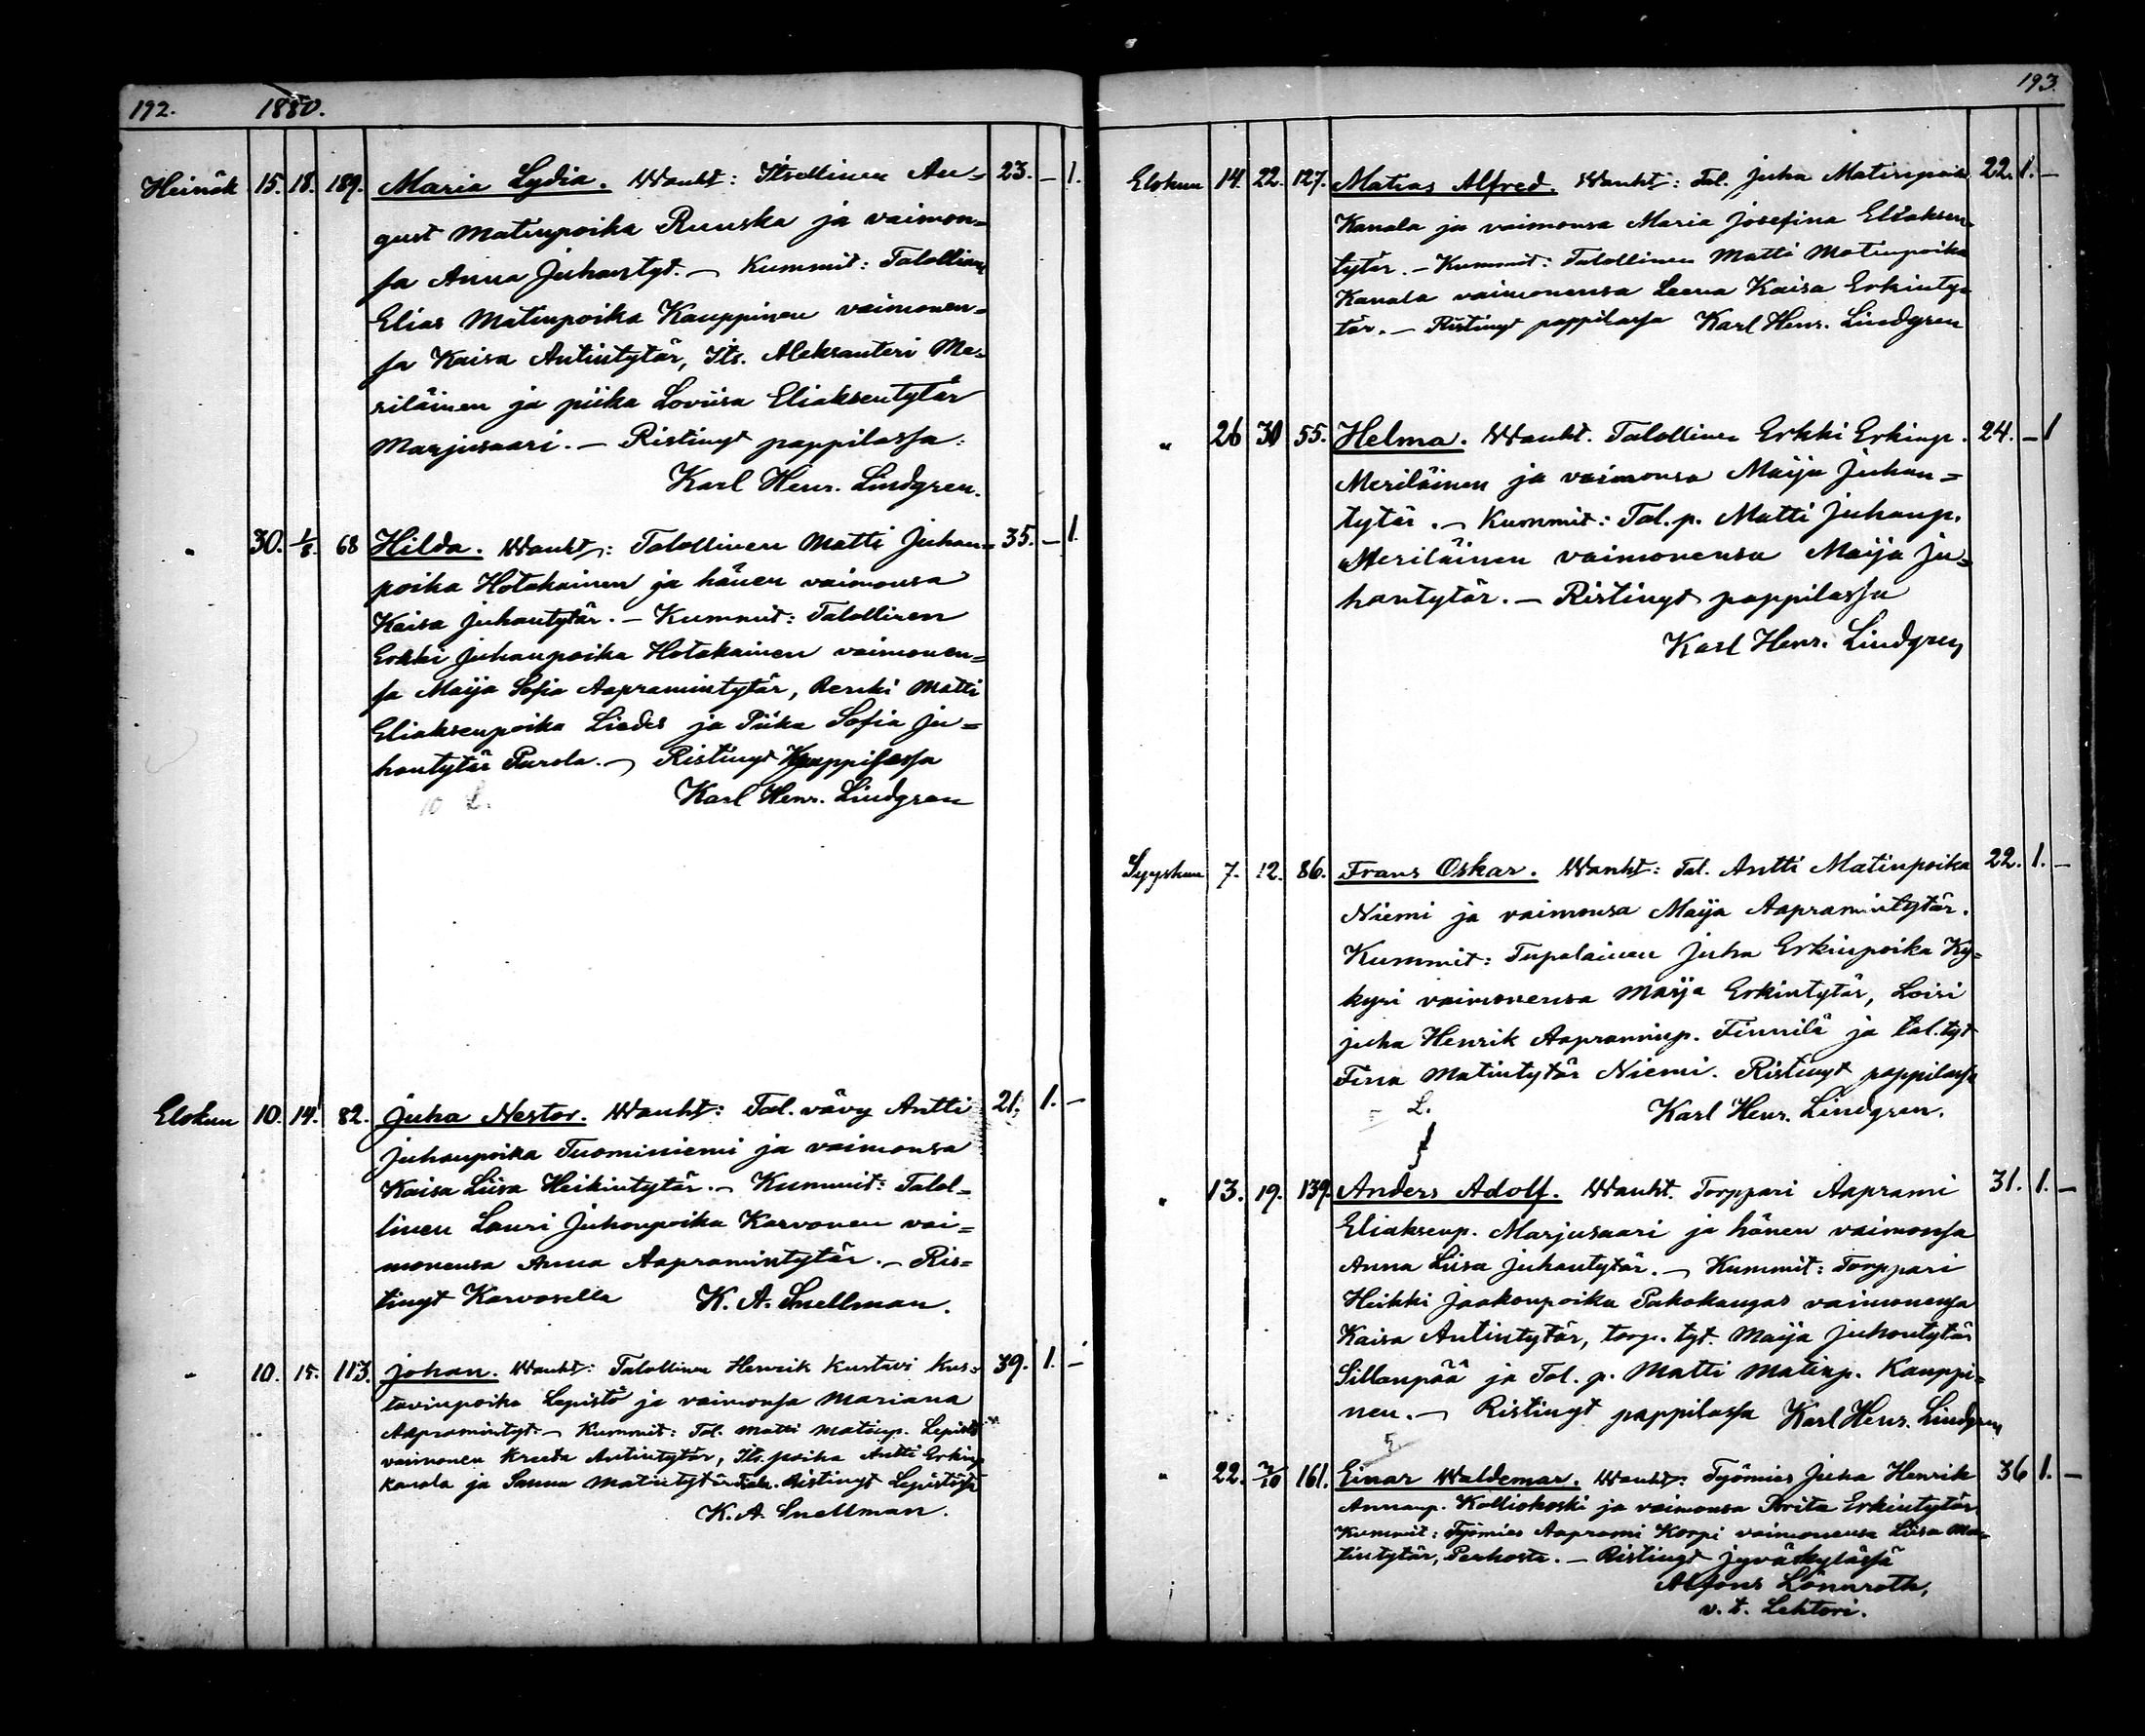 192. 1880.
Heinäk 15. 18. 189. Maria Lydia. Wanht: Itsellinen Au= 23. — 1.
gust Matinpoika Ruuska ja vaimon=
sa Anna Juhantyt. — Kummit: Talollinen
Elias Matinpoika Kauppinen vaimonen=
sa Kaisa Antintytär, Its. Aleksanteri Me=
riläinen ja piika Loviisa Eliaksentytär
Marjusaari. — Ristinyt pappilassa.
Karl Henr. Lindgren.
" 30. 1/8. 68 Hilda. Wanht: Talollinen Matti Juhan= 35. — 1.
poika Hotakainen ja hänen vaimonsa
Kaisa Juhantytär. — Kummit: Talollinen
Erkki Juhanpoika Hotakainen vaimonen=
sa Maija Sofia Aapramintytär, Renki Matti
Eliaksenpoika Liedes ja Piika Sofia Ju=
hantytär Purola. — Ristinyt pappilassa
Karl Henr. Lindgren
Elokuu 10. 14. 82. Juha Nestor. Wanht: Tal. vävy Antti 21. 1. —
Juhanpoika Tuominiemi ja vaimonsa
Kaisa Liisa Heikintytär. — Kummit: Talol=
linen Lauri Juhonpoika Karvonen vai=
monensa Anna Aapramintytär. — Ris=
tinyt Karvosella K. A. Snellman.
" 10. 15. 113. Johan. Wanht: Talollinen Henrik Kustavi Kus= 39. 1. —
tavinpoika Lepistö ja vaimonsa Mariana
Aapramintyt. — Kummit: Tal. Matti Matinp. Lepistö
vaimonen Kreeta Antintytär, Its. poika Antti Erkinp
Kanala ja Sanna Matintytär Ristinyt Lepistössä
K. A. Snellman.
193.
Elokuu 14. 22. 127. Matias Alfred. Wanht: Tal. Juha Matinpoik. 22. 1. —
Kanala ja vaimonsa Maria Josefina Eliaksen=
tytär. — Kummit: Talollinen Matti Matinpoika
Kanala vaimonensa Leena Kaisa Erkinty=
tär. — Ristinyt pappilassa Karl Henr. Lindgren
" 26 30 55. Helma. Wanht. Talollinen Erkki Erkinp. 24. — 1
Meriläinen ja vaimonsa Maija Juhan=
tytär. — Kummit: Tal. p. Matti Juhanp.
Meriläinen vaimonensa Maija Ju=
hantytär. — Ristinyt pappilassa
Karl Henr. Lindgren
Syyskuu 7. 12. 86. Frans Oskar. Wanht: Tal. Antti Matinpoika 22. 1. —
Niemi ja vaimonsa Maija Aapramintytär.
Kummit: Tupalainen Juha Erkinpoika Ky=
kyri vaimonensa Maija Erkintytär, Loisi
Juha Henrik Aapraminp. Finnilä ja tal. tyt
Fina Matintytär Niemi. Ristinyt pappilassa
L. Karl Henr. Lindgren.
" 13. 19. 139. Anders Adolf. Wanht. Torppari Aaprami 31. 1. —
Eliaksenp. Marjusaari ja hänen vaimonsa
Anna Liisa Juhantytär. — Kummit: Torppari
Heikki Jaakonpoika Pahokangas vaimonensa
Kaisa Antintytär, torp. tyt. Maija Juhontytär
Sillanpää ja Tal. p. Matti Matinp. Kauppi=
nen. — Ristinyt pappilassa Karl Henr. Lindgren
" 22. 2/10 161. Einar Waldemar. Wanht: Työmies Juha Henrik 36 1. —
Annanp. Kalliokoski ja vaimonsa Priita Erkintytär.
Kummit: Työmies Aaprami Korpi vaimonensa Liisa Ma=
tintytär, Perhosta. — Ristinyt Jyväskylässä
Alfons Lönnroth,
v. t. Lehtori.